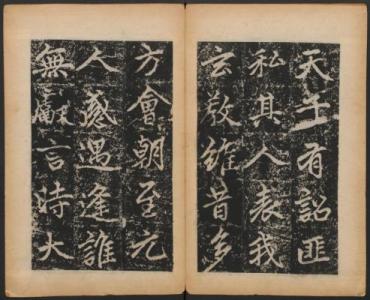 天子有詔匪
私其人表我
玄教雖昔多
方會朝至元
人感遇逢誰
無獻言時大